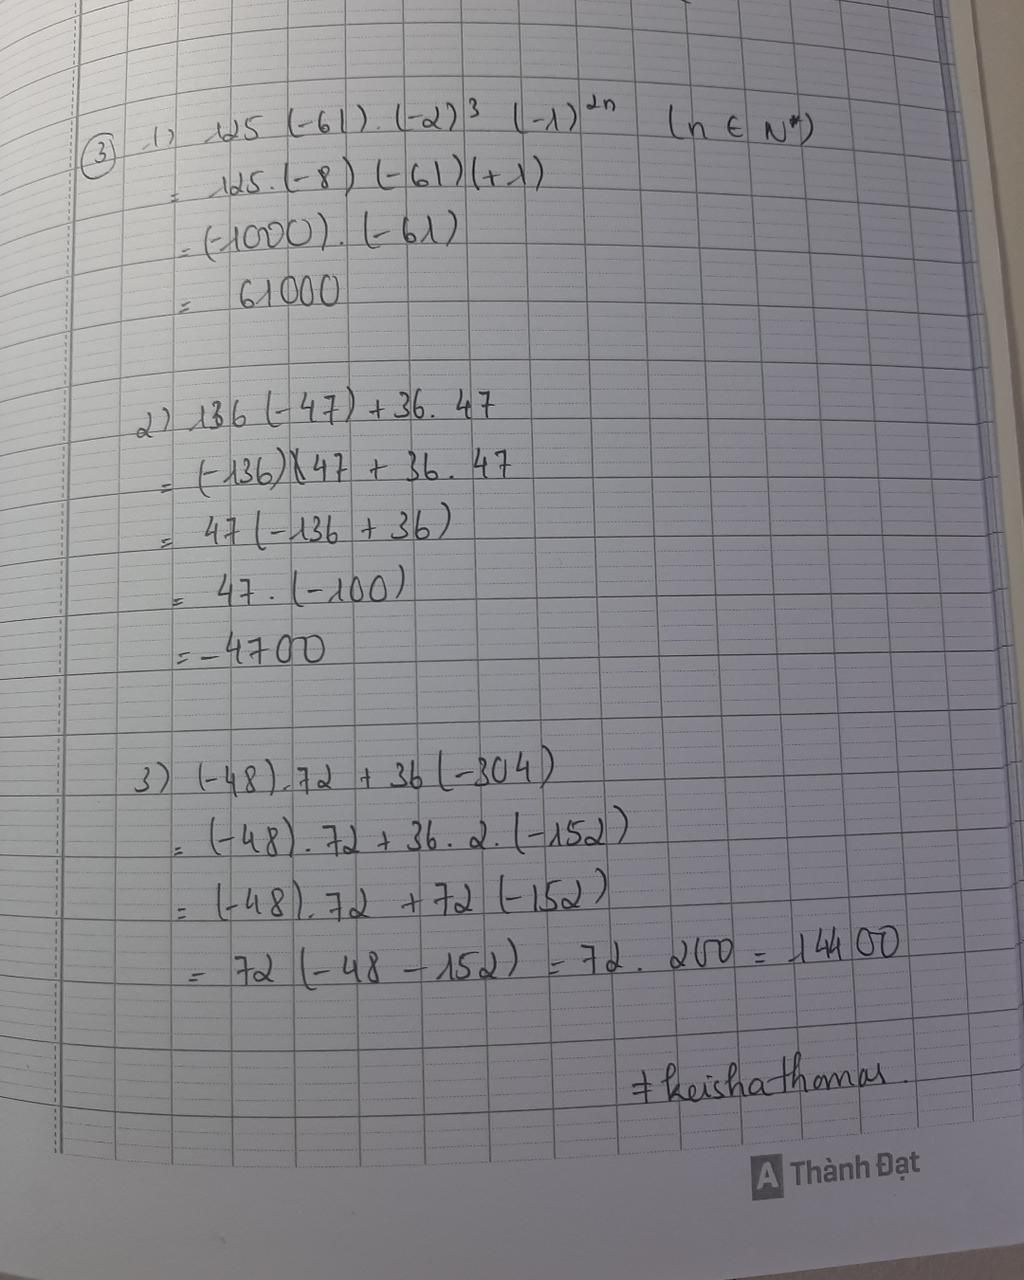 ③ 1) 125 (-61). (-2)³ (-1)²ⁿ (n ∈ N*)
= 125. (-8) (-61)(+1)
= (-1000). (-61)
= 61000
2) 136 (-47) + 36. 47
= (-136) 47 + 36. 47
= 47 (-136 + 36)
= 47. (-100)
= -4700
3) (-48). 72 + 36 (-304)
= (-48). 72 + 36. 2. (-152)
= (-48). 72 + 72 (-152)
= 72 (-48 - 152) = 72. 200 = 14400
#keishathomas
A Thành Đạt